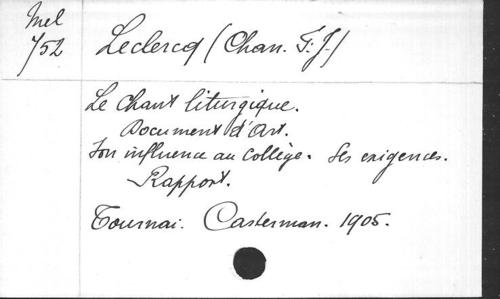 Mel
752
Leclercq (Chan. F. J.)
Le Chant liturgique.
Document d'Art.
Son influence au Collège. Ses exigences.
Rapport.
Tournai. Casterman. 1905.